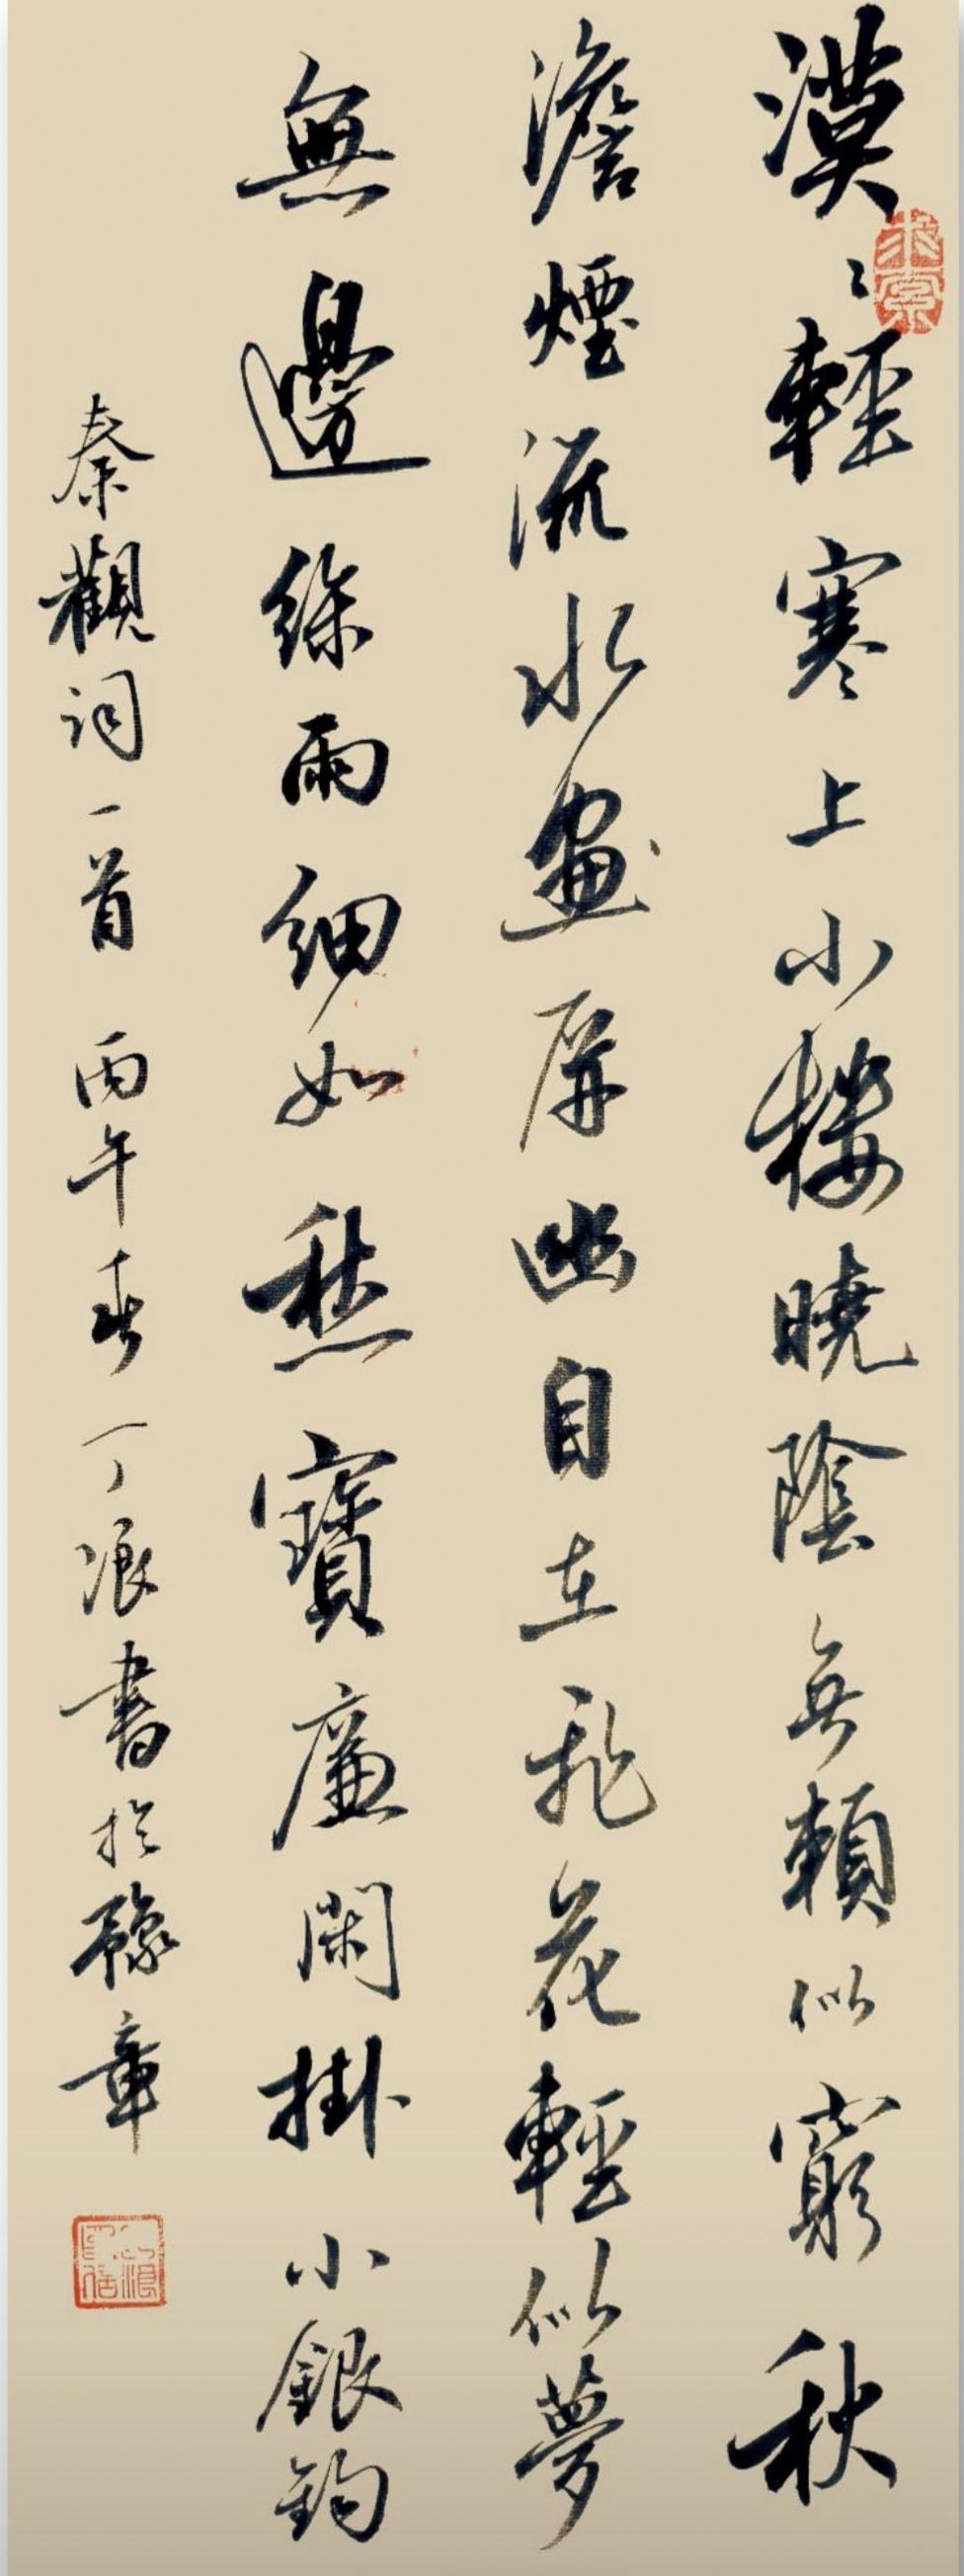 漠〻輕寒上小樓曉陰無賴似窮秋
澹煙流水畫屏幽自在飛花輕似夢
無邊絲雨細如愁寶廉閑掛小銀鈎
秦觀詞一首 丙午春 丁浪書於豫章